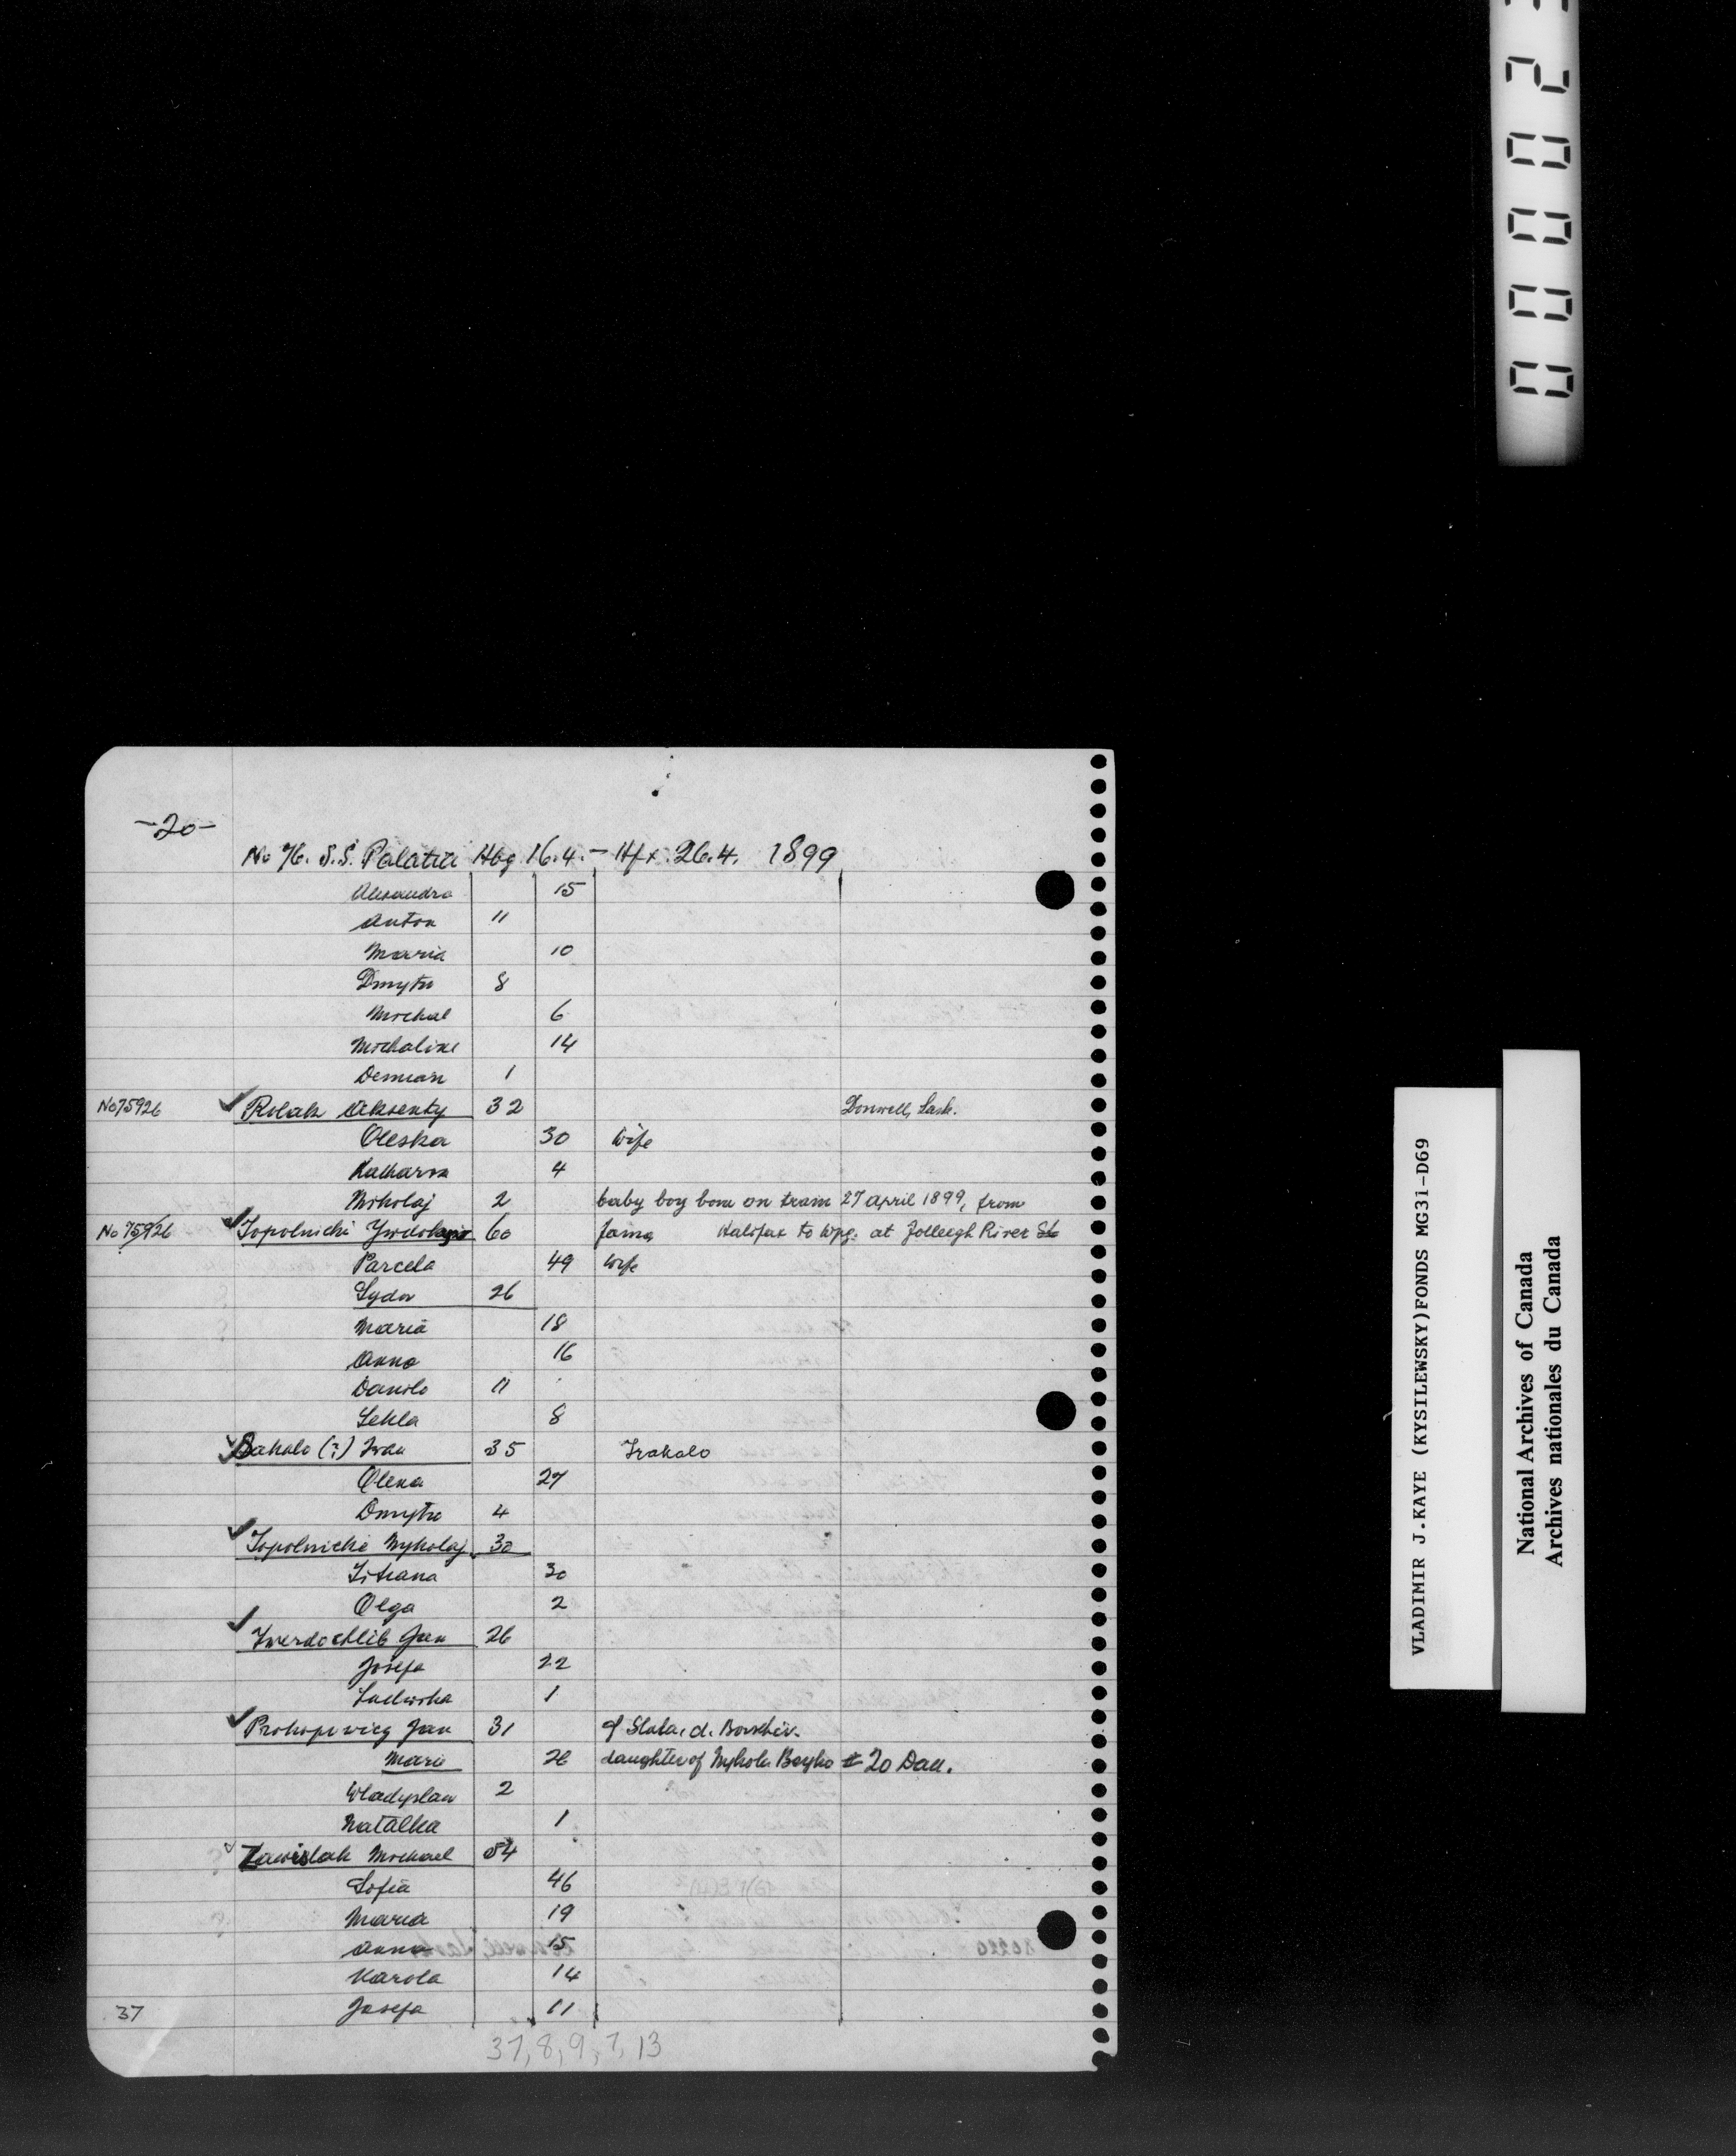 -20-
No 76. S.S. Palatia Hbg 16.4. - Hfx. 26.4. 1899
Alexandra 15
Anton 11
Maria 10
Dmytro 8
Michal 6
Michaline 14
Demian 1
No 75926 Rolak Aksenty 32 Donwell, Sask.
Oleska 30 wife
Katharva 4
Mikolaj 2 baby boy born on train 27 April 1899, from
No 75926 Topolnicki 60 Halifax to Wpg. at Jolleegh River St
Parcela 49 wife
Sydor 26
Maria 18
Anna 16
Danilo 11
Tekla 8
Sakalo (?) Iwan 35 Trakalo
Olena 27
Dmytro 4
Topolnicki Mykolaj 30
Titiana 30
Olga 2
Twerdochlib Jan 26
Josefa 22
Ludwika 1
Prokopowicz Jan 31 of Slata, d. Borshiv.
Mari 26 daughter of Mykola Boyko # 20 Dau.
Wladyslaw 2
Natalka 1
Zawislak Michael 54
Sofia 46
Maria 19
Anna 15
Karola 14
37 Josefa 11
37, 8, 9, 7, 13
0 0 0 0 2
VLADIMIR J.KAYE (KYSILEWSKY)FONDS MG31-D69
National Archives of Canada
Archives nationales du Canada